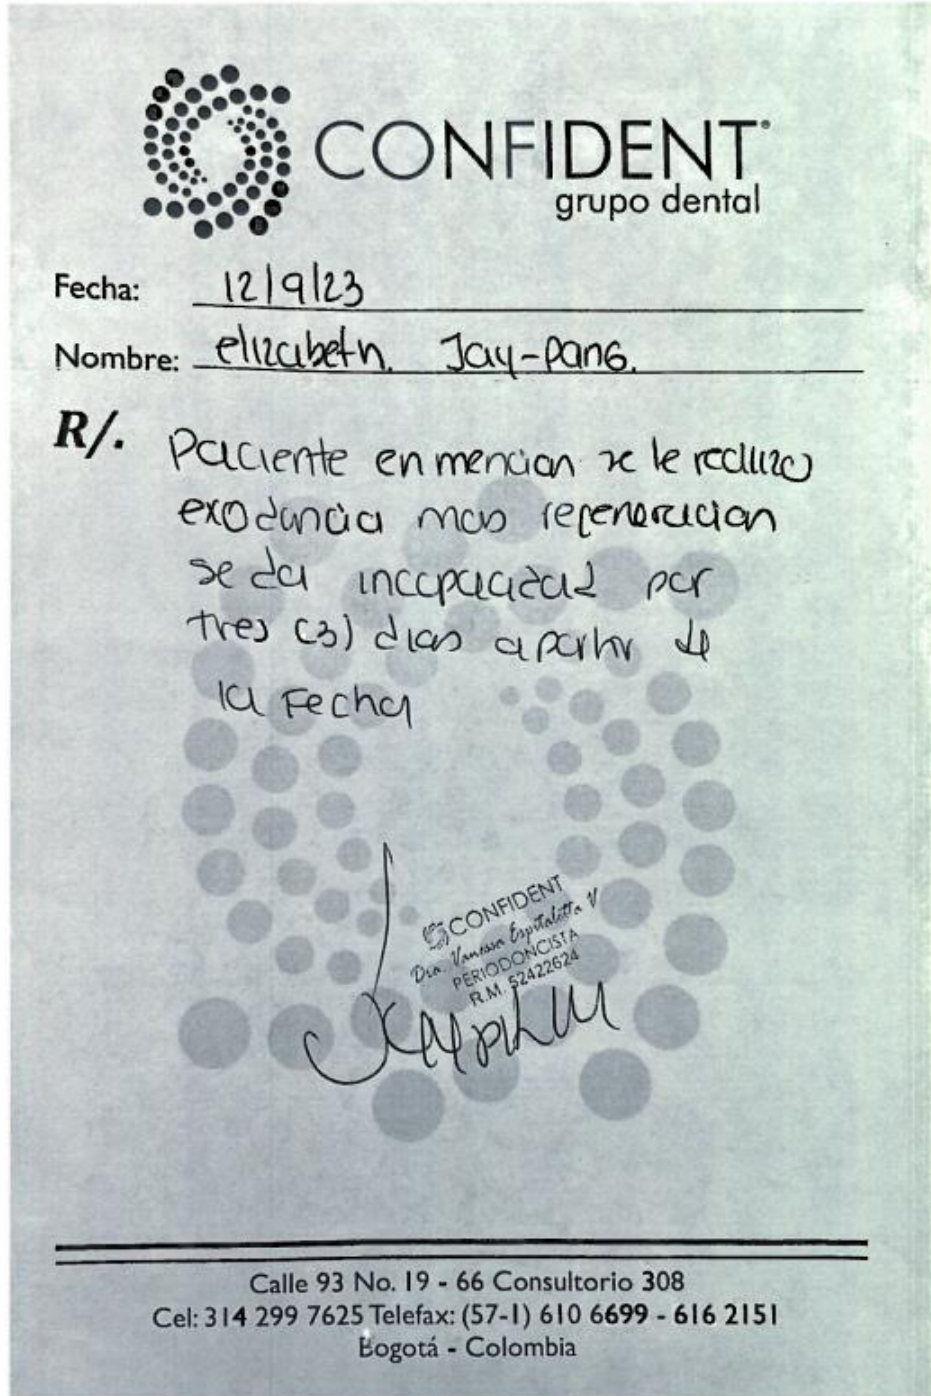 CONFIDENT®
grupo dental
Fecha: 12/9/23
Nombre: elizabeth. Jay-Pang.
R/. Paciente en mencion se le realizo
exodancia mas regeneracion
se da incapacidad por
tres (3) dias a partir de
la Fecha
CONFIDENT
Dra. Vanessa Espitaletta V
PERIODONCISTA
R.M. 52422624
Calle 93 No. 19 - 66 Consultorio 308
Cel: 314 299 7625 Telefax: (57-1) 610 6699 - 616 2151
Bogotá - Colombia